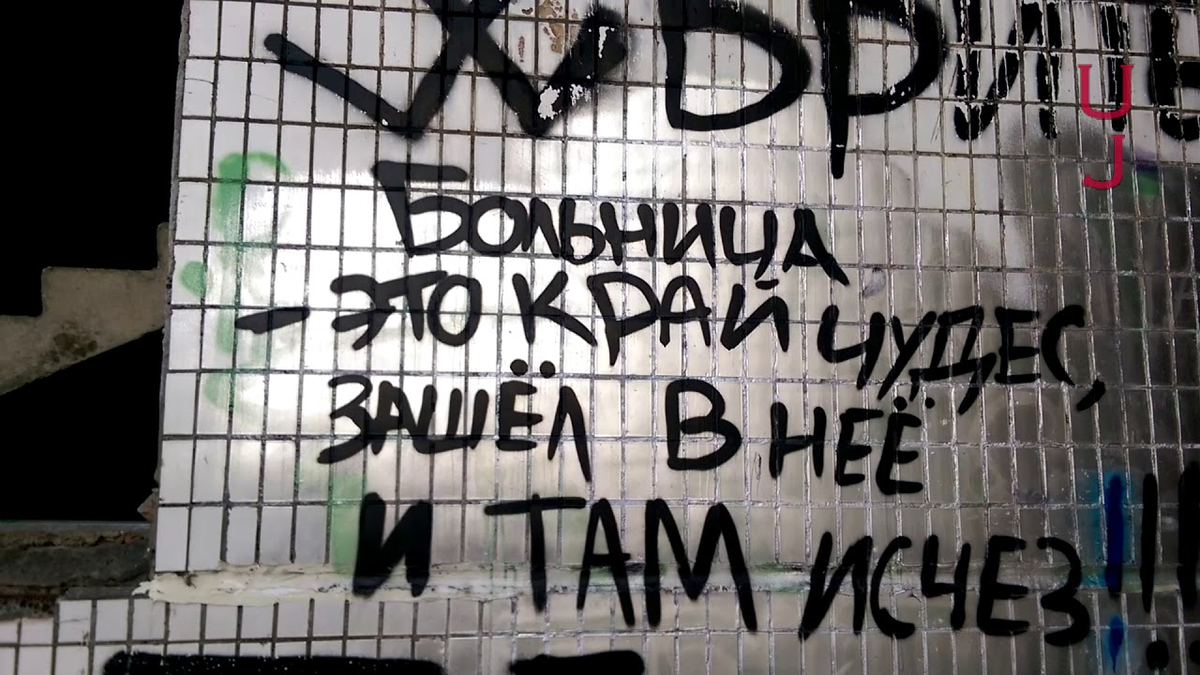 Больница
- ЭТО КРАЙ ЧУДЕС,
ЗАШЁЛ В НЕЁ
И ТАМ ИСЧЕЗ!!!
U
J